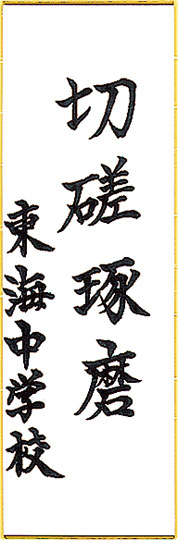 切磋琢磨
東海中学校